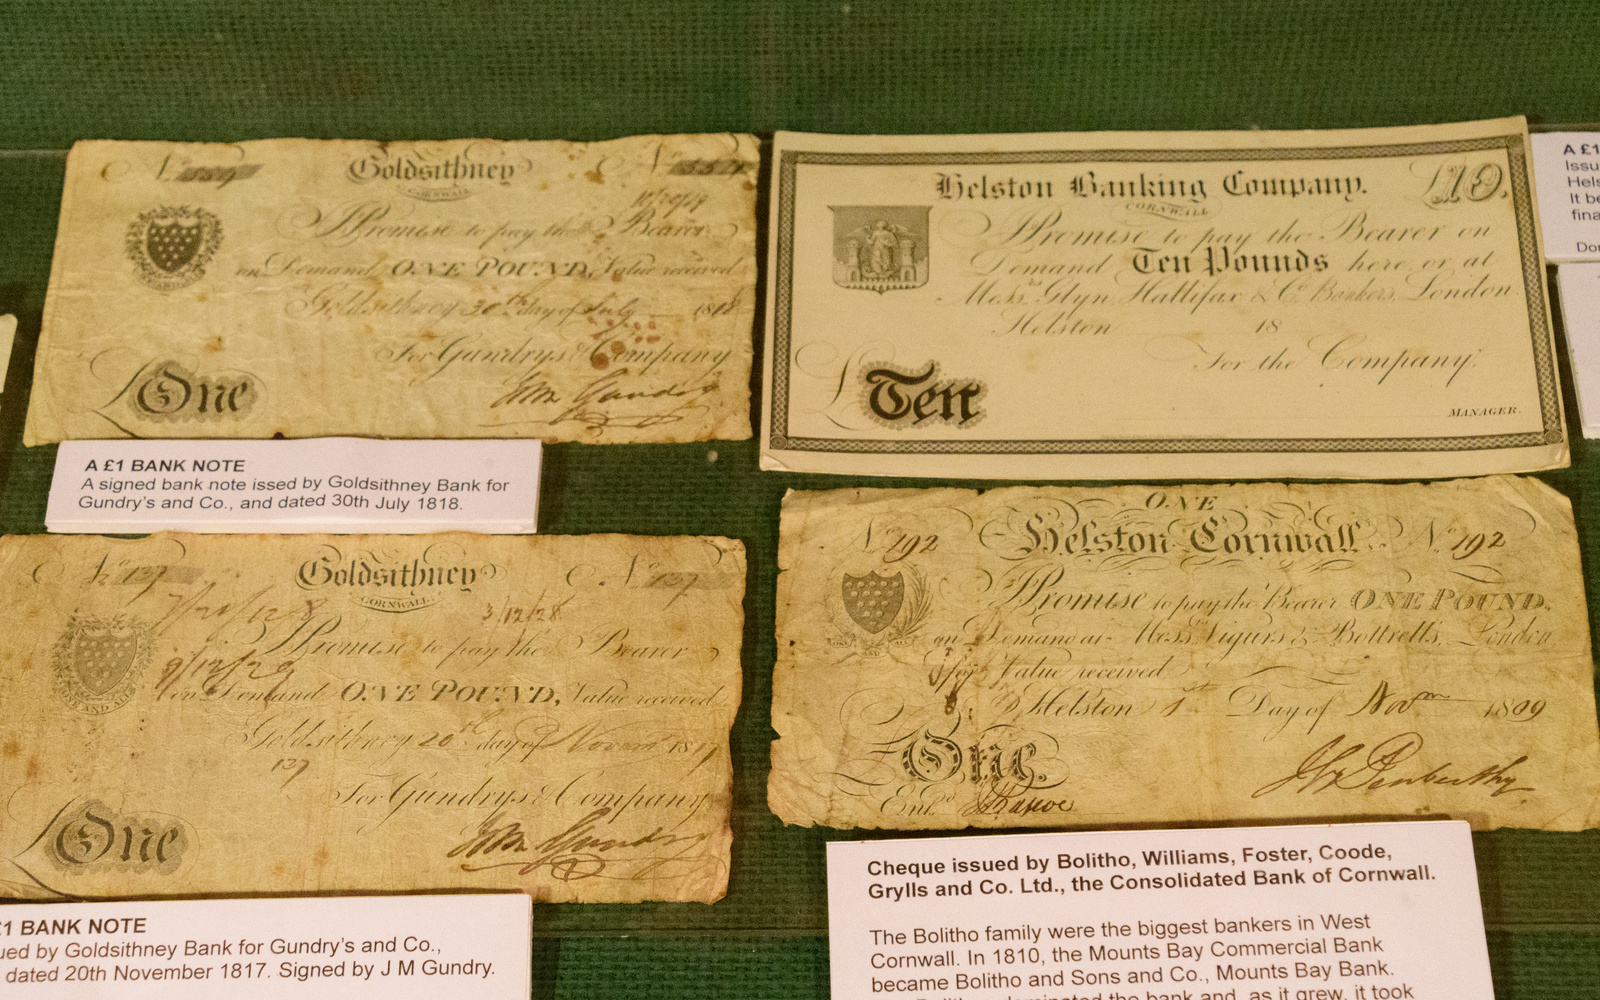 Goldsithney
CORNWALL
I Promise to pay the Bearer
on Demand ONE POUND, Value received
Goldsithney 30th day of July 1818
For Gundrys & Company
£ One
A £1 BANK NOTE
A signed bank note issed by Goldsithney Bank for
Gundry's and Co., and dated 30th July 1818.
Helston Banking Company. £10.
CORNWALL
I Promise to pay the Bearer on
Demand Ten Pounds here or at
Messrs Glyn, Hallifax & Co. Bankers, London.
Helston 18
For the Company,
£ Ten
MANAGER.
A £1
Issu
Hels
It be
fina
Don
No 137 Goldsithney No 137
CORNWALL
7/12/28
3/12/28
I Promise to pay the Bearer
9/12/28
on Demand ONE POUND, Value received
ONE AND ALL
Goldsithney 20th day of Novemr 1817
137
For Gundrys & Company
£ One
J M Gundry
£1 BANK NOTE
ued by Goldsithney Bank for Gundry's and Co.,
dated 20th November 1817. Signed by J M Gundry.
ONE
No 192 Helston Cornwall No 192
I Promise to pay the Bearer ONE POUND,
on Demand or at Messrs Vigurs & Bottrells, London
for Value received
Helston 1st Day of Novm 1809
£ One.
Entd
Cheque issued by Bolitho, Williams, Foster, Coode,
Grylls and Co. Ltd., the Consolidated Bank of Cornwall.
The Bolitho family were the biggest bankers in West
Cornwall. In 1810, the Mounts Bay Commercial Bank
became Bolitho and Sons and Co., Mounts Bay Bank.
dominated the bank and, as it grew, it took